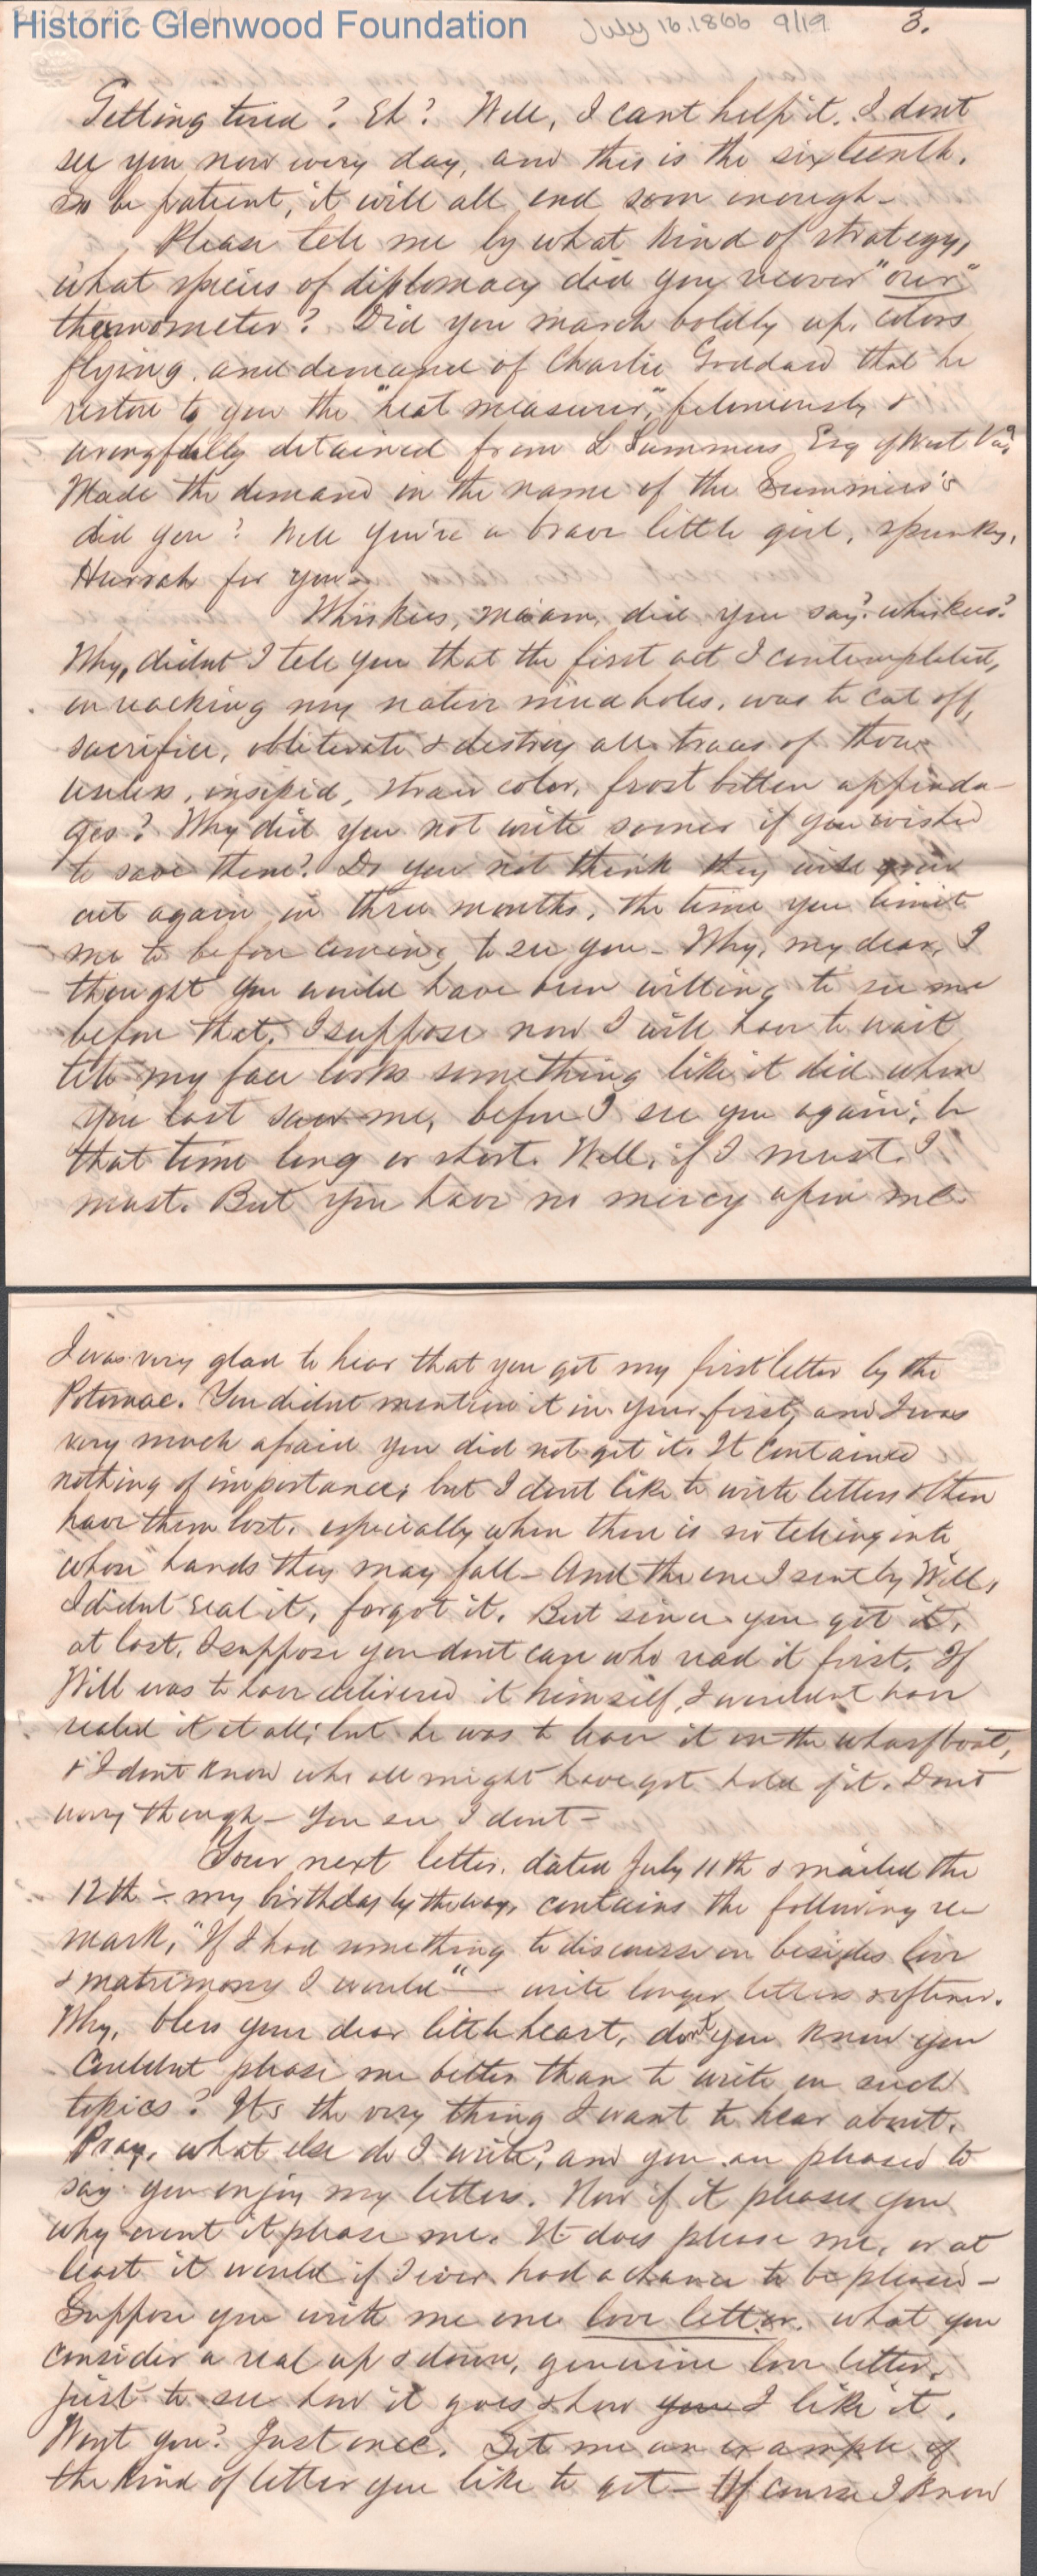 Historic Glenwood Foundation July 16.1866 9/19 3.
Getting tired? Eh? Well, I cant help it. I dont
see you now every day, and this is the sixteenth.
so be patient, it will all end soon enough -
Please tell me by what kind of strategy,
what species of diplomacy did you recover "our"
thermometer? Did you march boldly up, colors
flying, and demand of Charlie Goddard that he
restore to you the "heat measurer," feloniously &
wrongfully detained from L Summers Esq of West Va?
Made the demand in the name of the Summers's
did you? Well you're a brave little girl, spunky,
Hurrah for you -
Whiskers, ma'am, did you say? whiskers?
Why, didnt I tell you that the first act I contemplated,
on reaching my native mud holes, was to cut off,
sacrifice, obliterate & destroy all traces of those
useless, insipid, straw color, frost bitten appenda-
ges? Why did you not write sooner if you wished
to save them? Do you not think they will grow
out again in three months, the time you limit
me to before coming to see you - Why, my dear, I
thought you would have been willing to see me
before that. I suppose now I will have to wait
till my face looks something like it did when
you last saw me, before I see you again; be
that time long or short. Well, if I must I
must. But you have no mercy upon me.
I was very glad to hear that you got my first letter by the
Potomac. You didnt mention it in your first, and I was
very much afraid you did not get it. It contained
nothing of importance; but I dont like to write letters & then
have them lost, especially when there is no telling into
whose hands they may fall - And the one I sent by Will,
I didnt seal it, forgot it. But since you got it,
at last, I suppose you dont care who read it first. If
Will was to have delivered it himself, I wouldnt have
sealed it at all; but he was to leave it on the wharfboat,
& I dont know who all might have got hold of it. Dont
worry though - You see I dont -
Your next letter, dated July 11th & mailed the
12th - my birthday by the way, contains the following re
mark, "If I had something to discourse on besides love
& matrimony I would" - write longer letters & oftener.
Why, bless your dear little heart, dont you know you
Couldnt please me better than to write on such
topics? Its the very thing I want to hear about.
Pray, what else do I write? and you are pleased to
say you enjoy my letters. Now if it pleases you
why wont it please me. It does please me, or at
least it would if I ever had a chance to be pleased -
Suppose you write me one love letter, what you
consider a real up & down, genuine love letter,
just to see how it goes & how you I like it.
Wont you? Just once. Set me an example of
the kind of letter you like to get - Of course I know